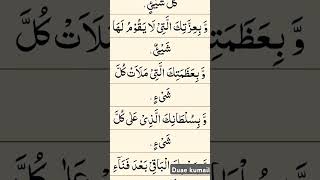 كُلَّ شَيْءٍ.
وَّ بِعِزَّتِكَ الَّتِيْ لَا يَقُوْمُ لَهَا
شَيْءٌ.
وَّ بِعَظَمَتِكَ الَّتِيْ مَلَاَتْ كُلَّ
شَيْءٍ.
وَّ بِسُلْطَانِكَ الَّذِيْ عَلٰى كُلَّ
شَيْءٍ.
الْبَاقِيْ بَعْدَ فَنَآءِ
Duae kumail